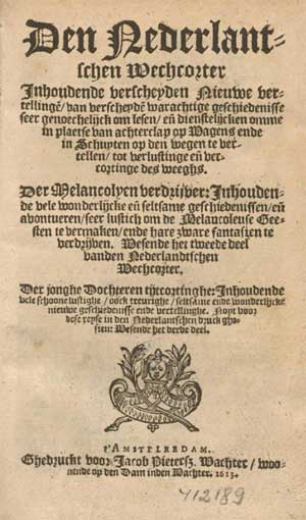 Den Nederlant-
schen Wechcorter
Inhoudende verscheyden Nieuwe ver-
tellingẽ/ van verscheydẽ warachtige geschiedenisse
seer genoechelijck om lesen/ eñ dienstelijcken omme
in plaetse van achterclap op Wagens ende
in Schuyten op den wegen te ver-
tellen/ tot verlustinge eñ ver-
cortinge des weeghs.
Der Melancolyen verdrijver: Inhouden-
de vele wonderlijcke eñ seltsame geschiedenissen/ eñ
avontueren/ seer lustich om de Melancoleuse Gee-
sten te vermaken/ ende hare zware fantasien te
verdrijven. Wesende het tweede deel
vanden Nederlandtschen
Wechcorter.
Der jonghe Dochteren tijtcortinghe: Inhoudende
vele schoone lustighe/ oock treurighe/ seltsame ende wonderlijcke
nieuwe geschiedenisse ende vertellinghe. Noyt voor
dese reyse in den Nederlantschen druck ghe-
sien: Wesende het derde deel.
t'AMSTELREDAM.
Ghedruckt voor Jacob Pietersz. Wachter/ woo-
nende op den Dam inden Wachter. 1613.
412189